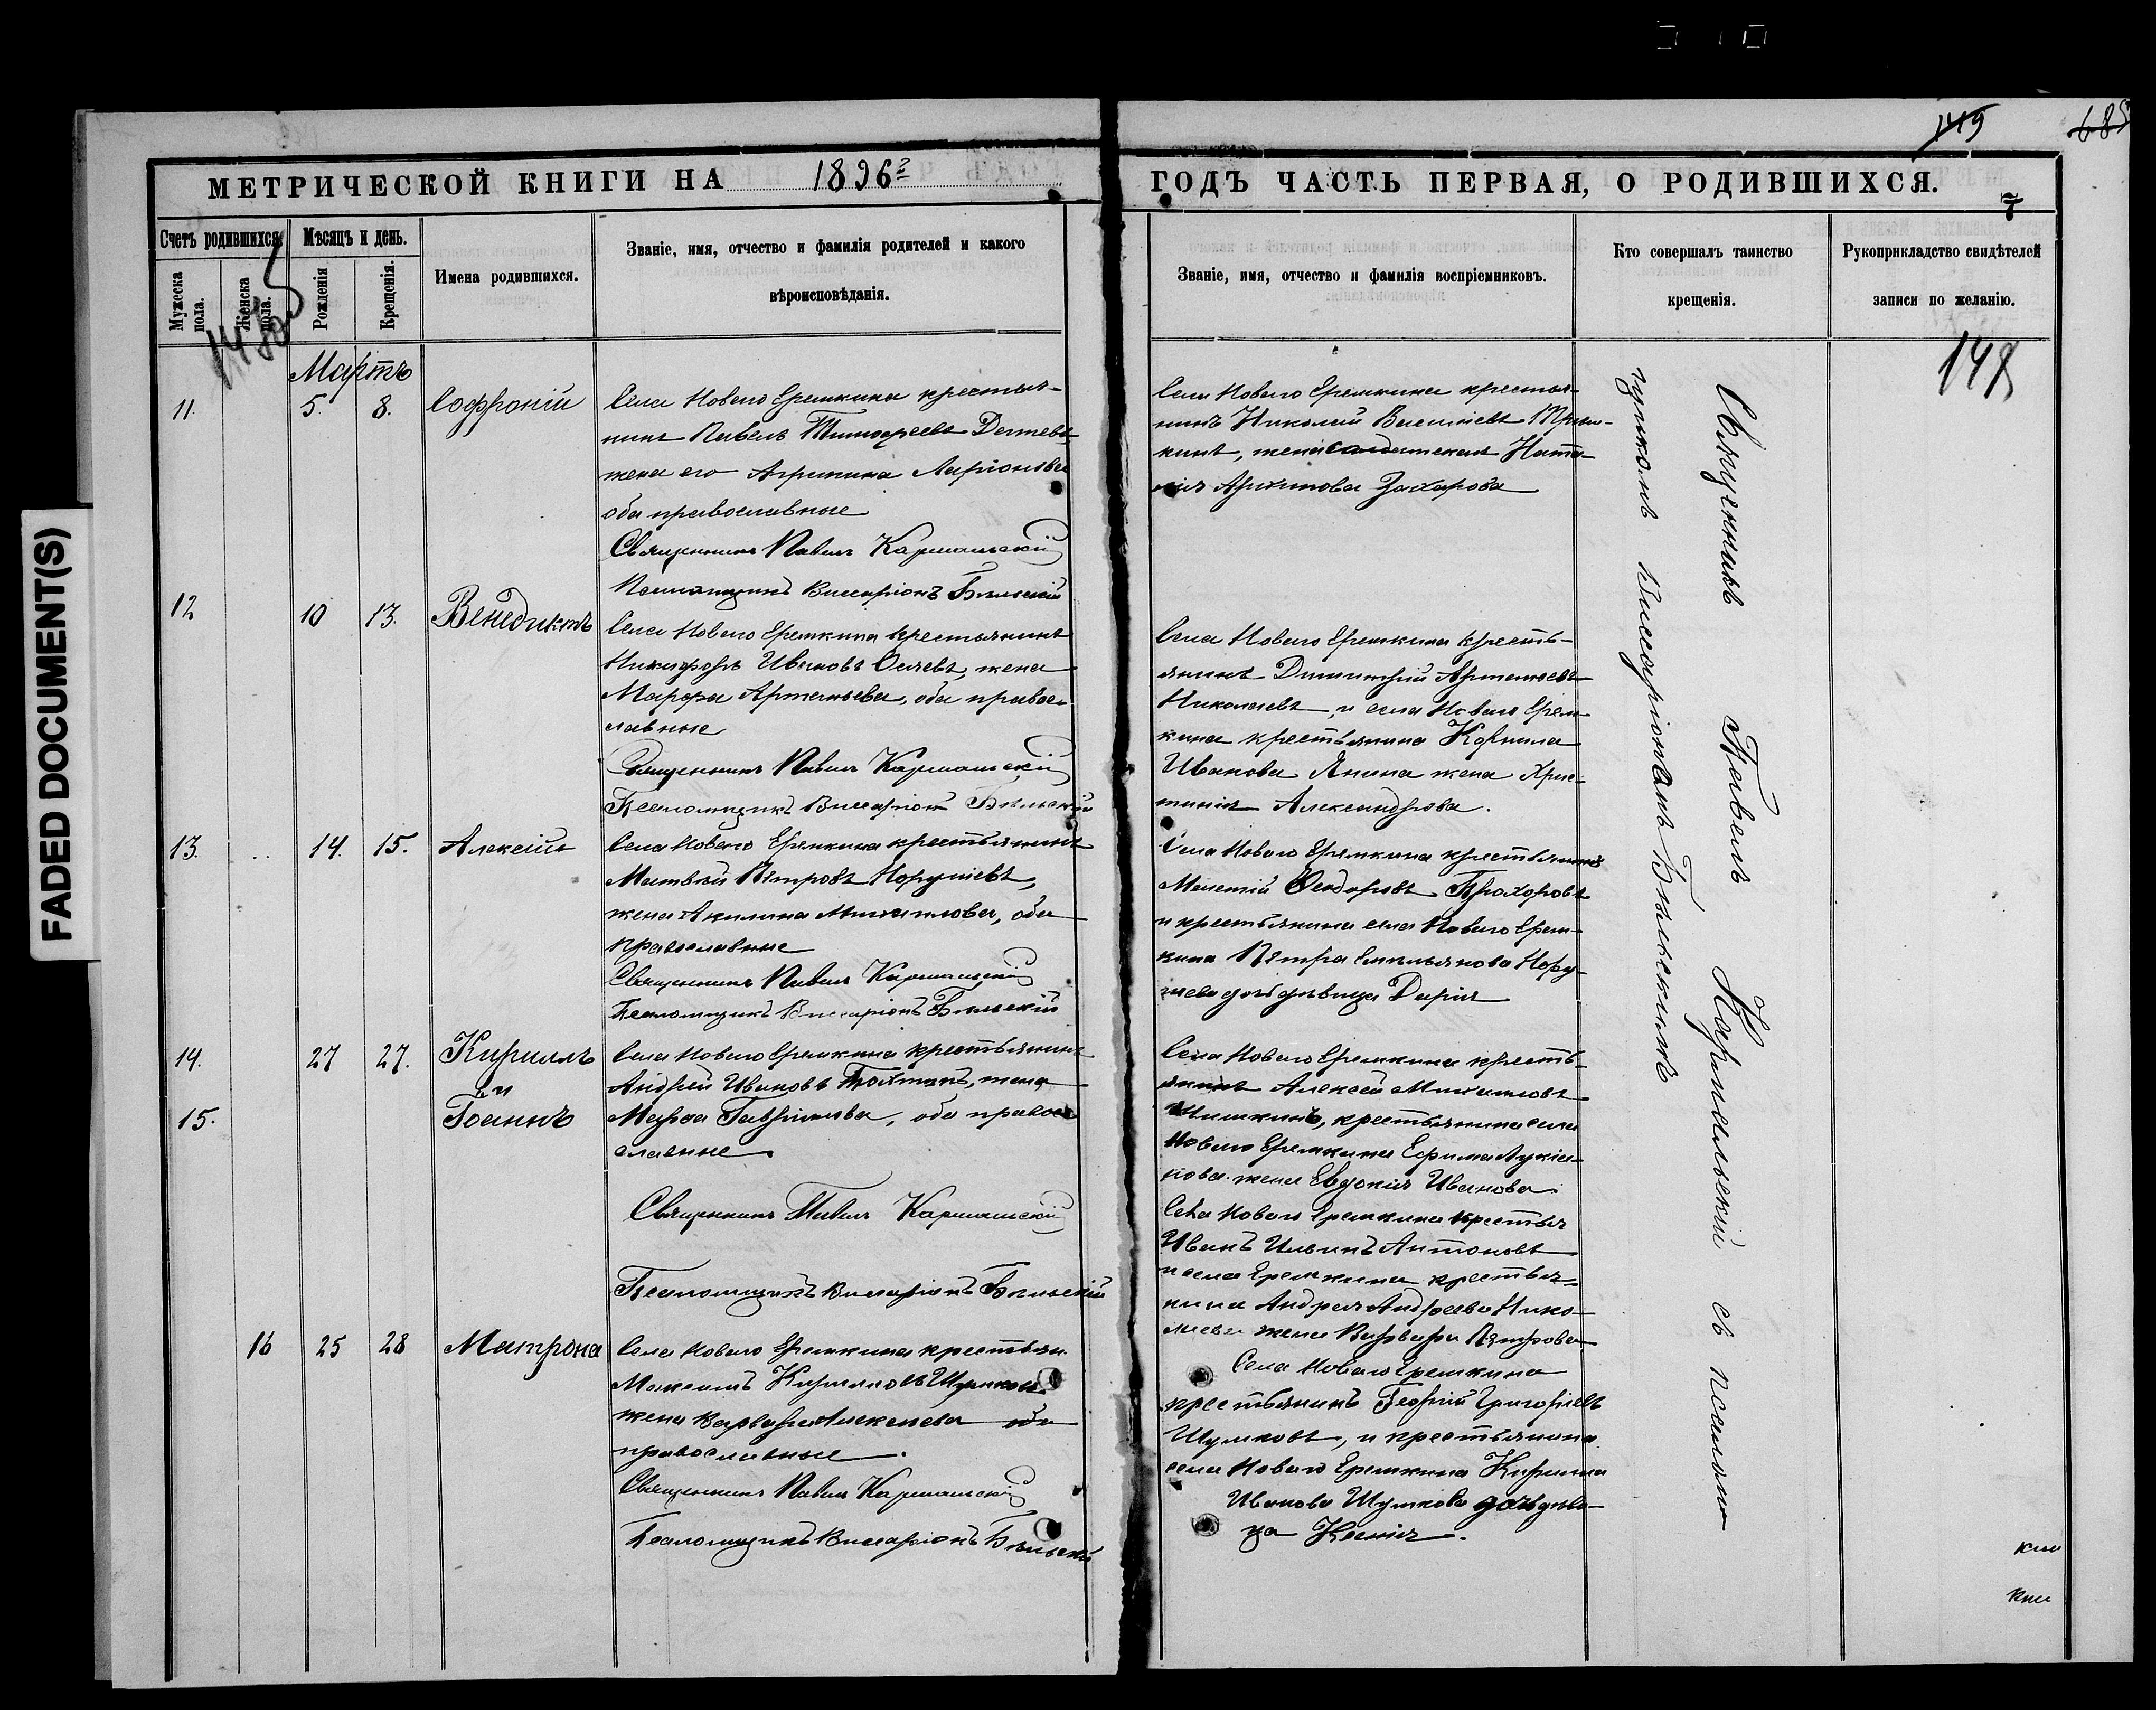 149
685
МЕТРИЧЕСКОЙ КНИГИ НА 1896г ГОДЪ ЧАСТЬ ПЕРВАЯ, О РОДИВШИХСЯ.
7
Счетъ родившихся
Мужеска пола.
Женска пола.
Мѣсяцъ и день.
Рожденія
Крещенія.
Имена родившихся.
Званіе, имя, отчество и фамилія родителей и какого
вѣроисповѣданія.
Званіе, имя, отчество и фамилія воспріемниковъ.
Кто совершалъ таинство
крещенія.
Рукоприкладство свидѣтелей
записи по желанію.
148
Мартъ
11. 5. 8. Софроній
Села Новаго Еремкина крестья-
нинъ Павелъ Тимофеевъ
жена его Агрипина Ларіонова
оба православные
Священникъ Павелъ Кармальскій
Псаломщикъ Виссаріонъ Бѣльскій
Села Новаго Еремкина крестья-
нинъ Николай Васильевъ
кинъ, жена солдатская Ната-
лія Архипова Захарова
12 10 13. Венедиктъ
Села Новаго Еремкина крестьянинъ
Никифоръ Ивановъ жена
Марфа Артемьева, оба правос-
лавные
Священникъ Павелъ Кармальскій
Псаломщикъ Виссаріонъ Бѣльскій
Села Новаго Еремкина кресть-
янинъ Димитрій Артемьевъ
Николаевъ, и села Новаго Ерем-
кина крестьянина Корнила
Иванова Янина жена Хрис-
тинія Александрова.
13. 14. 15. Алексій
Села Новаго Еремкина крестьянинъ
Матвѣй Петровъ Норушевъ,
жена Акилина Михаилова, оба
православные
Священникъ Павелъ Кармальскій
Псаломщикъ Виссаріонъ Бѣльскій
Села Новаго Еремкина крестьянинъ
Мелетій Ѳедоровъ Прохоровъ
и крестьянина села Новаго Ерем-
кина Петра Емельянова Нору-
шева дочь дѣвица Дарія
14. 27 27. Кириллъ
и
15. Іоаннъ
Села Новаго Еремкина крестьянинъ
Андрей Ивановъ жена
Марфа Гавріилова, оба правос
славные
Священникъ Павелъ Кармальскій
Псаломщикъ Виссаріонъ Бѣльскій
Села Новаго Еремкина кресть-
янинъ Алексѣй Михаиловъ
Шишкинъ, крестьянина села
Новаго Еремкина Ефима Лукія-
нова жена Евдокія Иванова
Села Новаго Еремкина крестья
Иванъ Ильинъ Антоновъ
и села Еремкина крестья-
нина Андрея Андреева Нико-
лаева жена Варвара Петрова
16 25 28 Матрона
Села Новаго Еремкина крестьян.
Максимъ Кирилловъ Шумковъ
жена Варвара Алексеева оба
православные.
Священникъ Павелъ Кармальскій
Псаломщикъ Виссаріонъ Бѣльскій
Села Новаго Еремкина
крестьянинъ Георгій Григорьевъ
Шумковъ, и крестьянина
села Новаго Еремкина Кирилла
Иванова Шумкова дочь дѣви-
ца Ксенія.
Священникъ Павелъ Кармальскій съ псалом-
щикомъ Виссаріономъ Бѣльскимъ
FADED DOCUMENT(S)